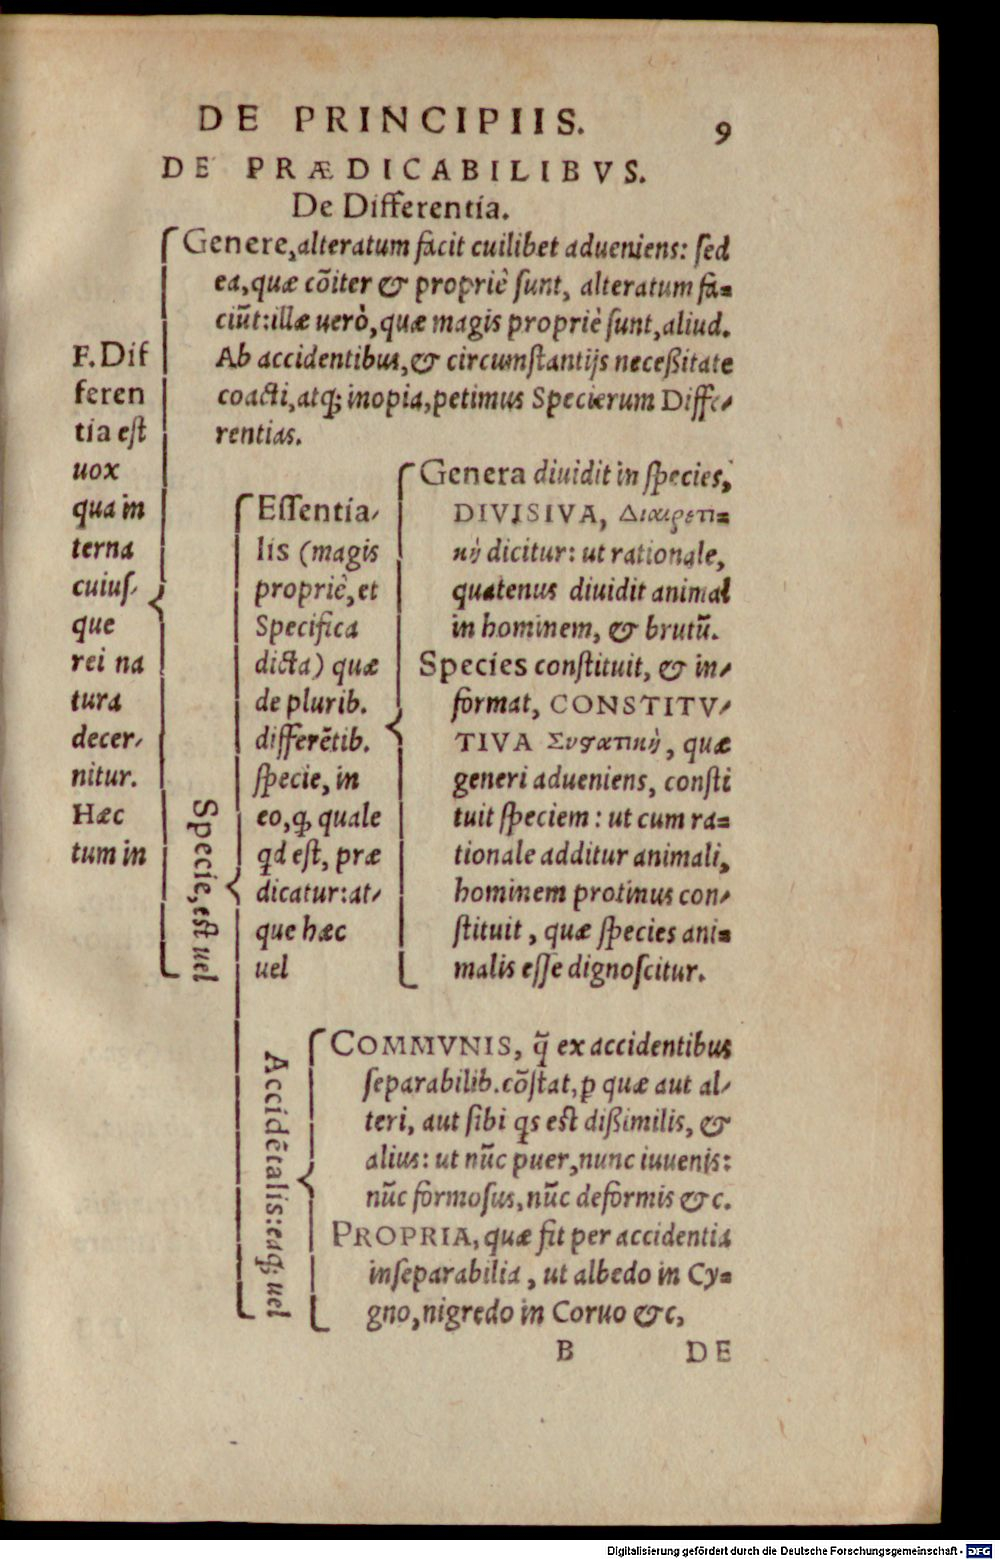 DE PRINCIPIIS. 9
DE PRÆDICABILIBVS.
De Differentia.
F. Dif
feren
tia est
uox
qua in
terna
cuius-
que
rei na
tura
decer-
nitur.
Hæc
tum in
Genere, alteratum facit cuilibet adueniens: sed
ea, quæ cõiter & propriè sunt, alteratum fa=
ciũt: illæ uerò, quæ magis propriè sunt, aliud.
Ab accidentibus, & circumstantijs neceßitate
coacti, atq; inopia, petimus Specierum Diffe-
rentias.
Specie, est uel
Essentia-
lis (magis
propriè, et
Specifica
dicta) quæ
de plurib.
differẽtib.
specie, in
eo, ꝙ quale
qd est, præ
dicatur: at-
que hæc
uel
Genera diuidit in species,
DIVISIVA, Διαιρετι=
κὴ dicitur: ut rationale,
quatenus diuidit animal
in hominem, & brutũ.
Species constituit, & in-
format, CONSTITV-
TIVA Συϛατικὴ, quæ
generi adueniens, consti
tuit speciem: ut cum ra=
tionale additur animali,
hominem protinus con-
stituit, quæ species ani=
malis esse dignoscitur.
Accidẽtalis: eaq; uel
COMMVNIS, q̃ ex accidentibus
separabilib. cõstat, ꝑ quæ aut al-
teri, aut sibi qs est dißimilis, &
alius: ut nũc puer, nunc iuuenis:
nũc formosus, nũc deformis &c.
PROPRIA, quæ fit per accidentia
inseparabilia, ut albedo in Cy=
gno, nigredo in Coruo &c,
B DE
Digitalisierung gefördert durch die Deutsche Forschungsgemeinschaft - DFG